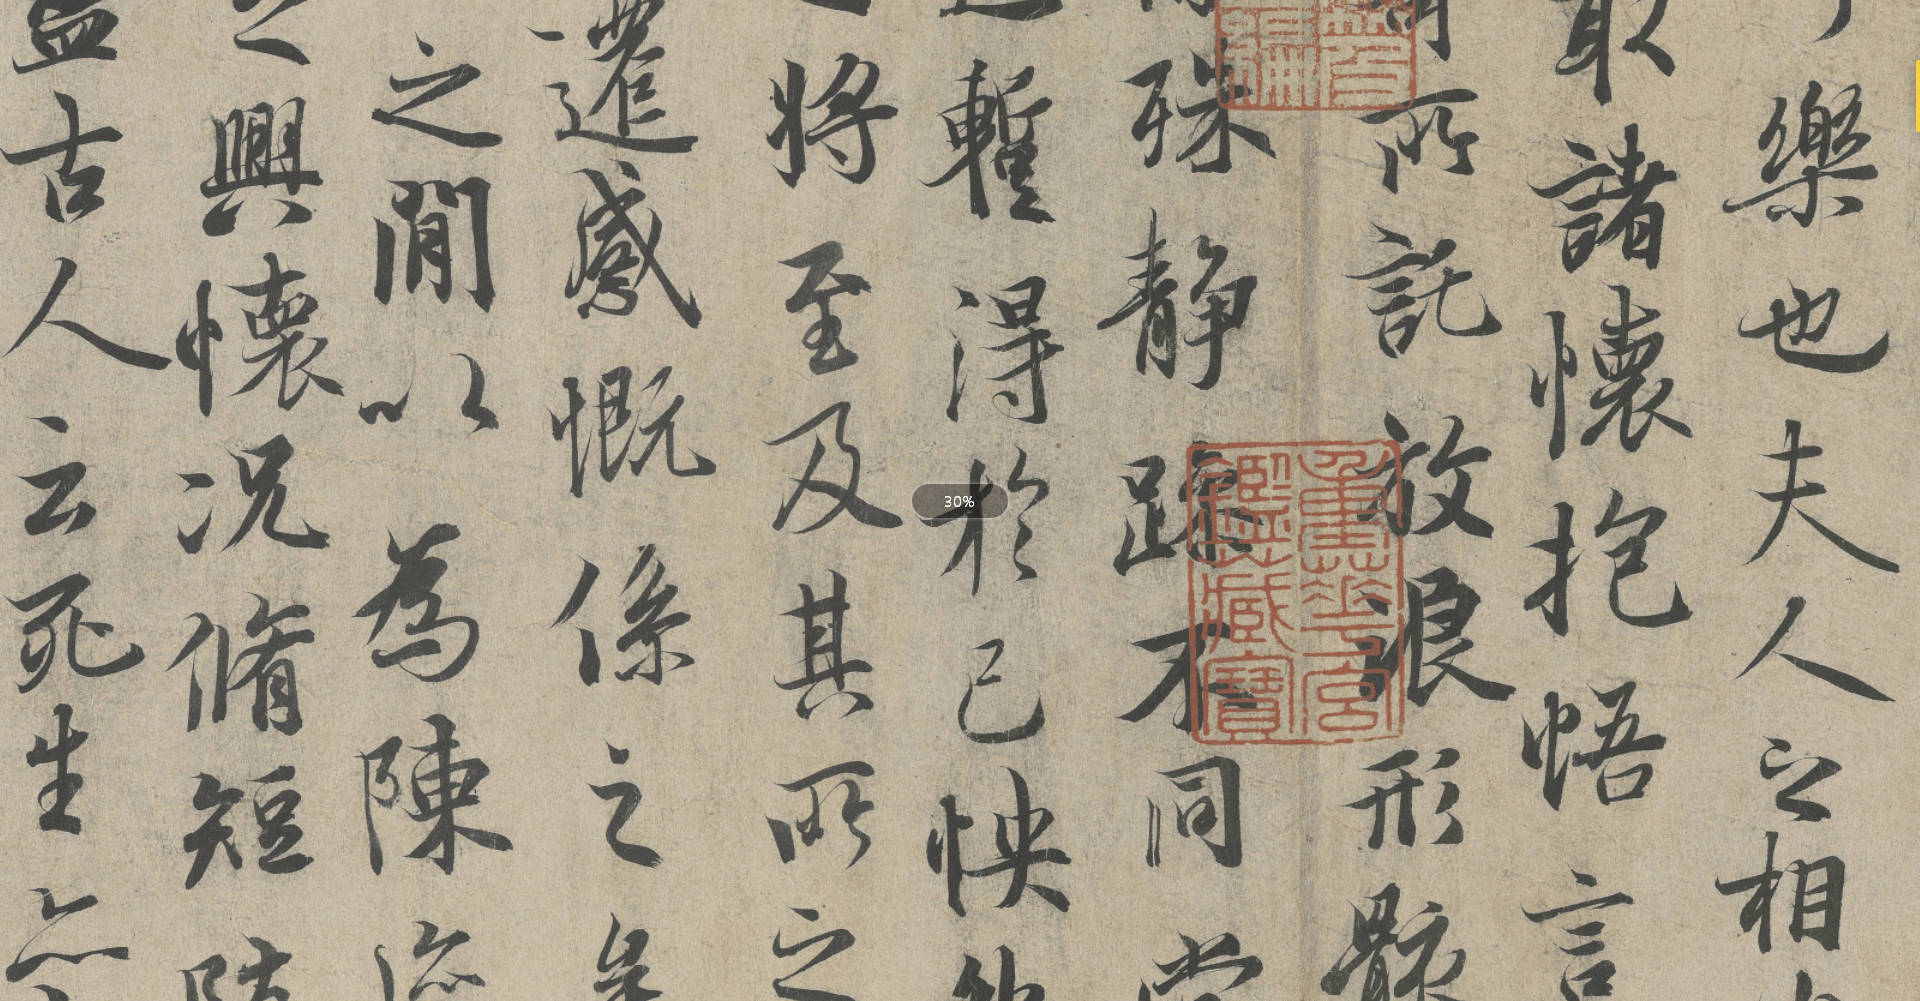 樂也夫人之相
取諸懷抱悟言
所託放浪形骸
殊静躁不同當
暫得於己怏
将至及其所之
遷感慨係之矣
之閒以為陳迹
之興懷況脩短隨
盡古人云死生亦
重華宮
鑑藏寶
30%